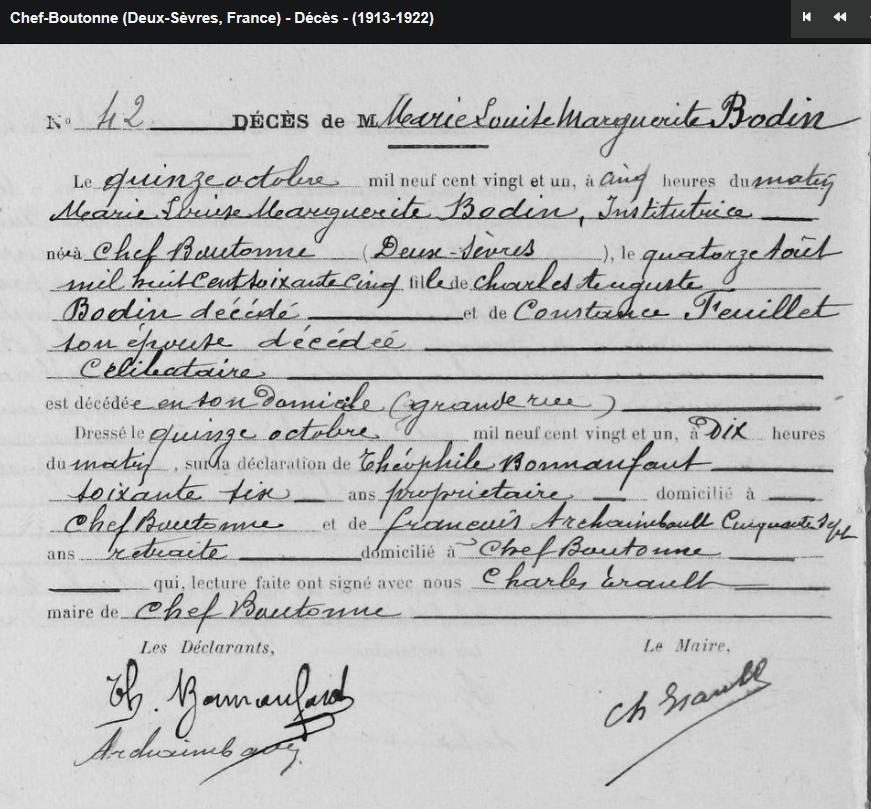 Chef-Boutonne (Deux-Sèvres, France) - Décès - (1913-1922)
N° 42 DÉCÈS de M Marie Louise Marguerite Bodin
Le quinze octobre mil neuf cent vingt et un, à cinq heures du matin
Marie Louise Marguerite Bodin, Institutrice
née à Chef Boutonne (Deux-Sèvres), le quatorze Août
mil huit cent soixante cinq fille de Charles Auguste
Bodin décédé et de Constance Feuillet
son épouse décédée
Célibataire
est décédée en son Domicile (grande rue)
Dressé le quinze octobre mil neuf cent vingt et un, à Dix heures
du matin, sur la déclaration de Théophile Bonnanfant
soixante six ans propriétaire domicilié à
Chef Boutonne et de françois Archaimbault Cinquante sept
ans retraité domicilié à Chef Boutonne
qui, lecture faite ont signé avec nous Charles Érault
maire de Chef Boutonne
Les Déclarants, Le Maire,
Th. Bonnanfand Ch Érault
Archaimbault